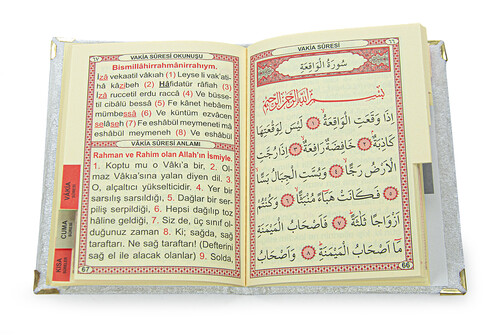 ٦٧
VAKİA SÛRESİ OKUNUŞU
Bismillâhirrahmânirrahıym.
İzâ vekaatil vâkıah (1) Leyse li vak'ati-
hâ kâzibeh (2) Hâfidatür râfiah (3)
İzâ ruccetil erdu raccâ (4) Ve büsse-
til cibâlü bessâ (5) Fe kânet hebâem
mümbessâ (6) Ve küntüm ezvâcen
selâseh (7) Fe eshâbül meymeneti mâ
eshâbül meymeneh (8) Ve eshâbül
VAKİA SÛRESİ ANLAMI
Rahman ve Rahim olan Allah'ın ismiyle.
1. Koptu mu o Vâkı'a bir, 2. Ol-
maz Vâkıa'sına yalan diyen dil. 3.
O, alçaltıcı yükselticidir. 4. Yer bir
sarsılış sarsıldığı, 5. Dağlar bir ser-
piliş serpildiği, 6. Hepsi dağılıp toz
hâline geldiği, 7. Siz de, üç sınıf ol-
duğunuz zaman 8. Ki; sağda, sağ
taraftarı. Ne sağ taraftarı! (Defterini
sağ el ile alacak olanlar) 9. Solda,
67
VAKİA
CUMA
KISA
VAKİA SÛRESİ
٦٦
سُورَةُ الْوَاقِعَةِ
بِسْمِ اللَّهِ الرَّحْمَٰنِ الرَّحِيمِ
اِذَا وَقَعَتِ الْوَاقِعَةُ ﴿١﴾ لَيْسَ لِوَقْعَتِهَا
كَاذِبَةٌ ﴿٢﴾ خَافِضَةٌ رَافِعَةٌ ﴿٣﴾ اِذَا رُجَّتِ
الْاَرْضُ رَجًّا ﴿٤﴾ وَبُسَّتِ الْجِبَالُ بَسًّا
﴿٥﴾ فَكَانَتْ هَبَاءً مُنْبَثًّا ﴿٦﴾ وَكُنْتُمْ
اَزْوَاجًا ثَلٰثَةً ﴿٧﴾ فَاَصْحَابُ الْمَيْمَنَةِ
مَا اَصْحَابُ الْمَيْمَنَةِ ﴿٨﴾ وَاَصْحَابُ
66